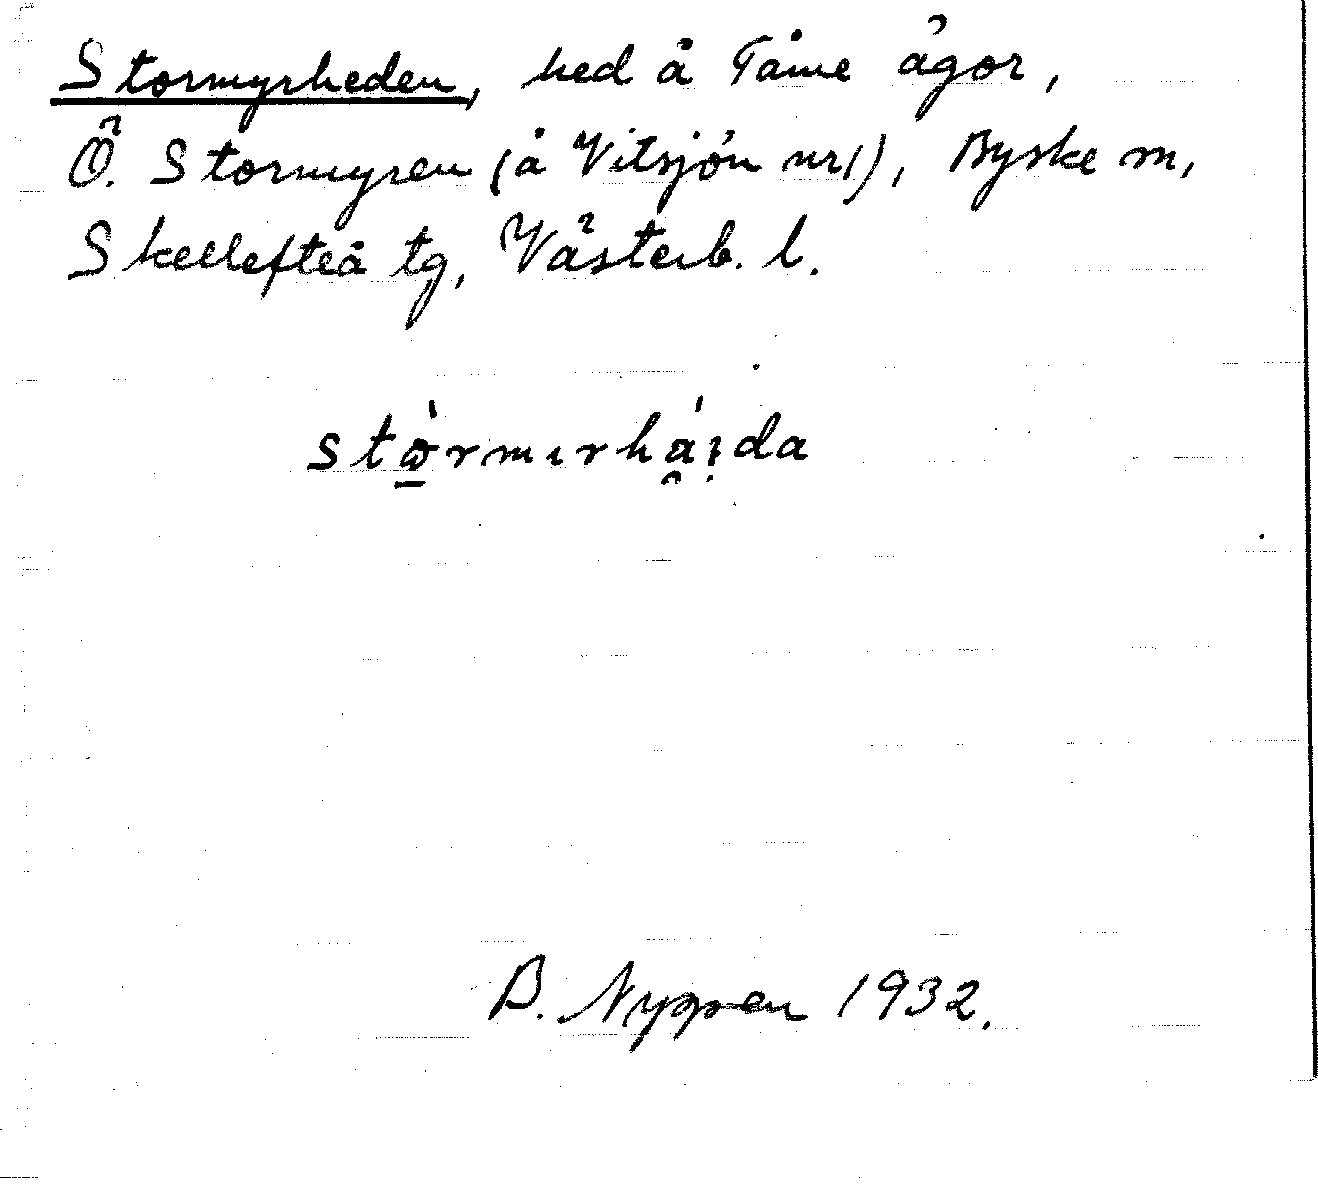 Stormyrheden, hed å Tåme ägor,
Ö. Stormyren (å Vitsjön nr 1), Byske sn,
Skellefteå tg, Västerb. l.
stò̱rmırhái̭da
B. Nygren 1932.